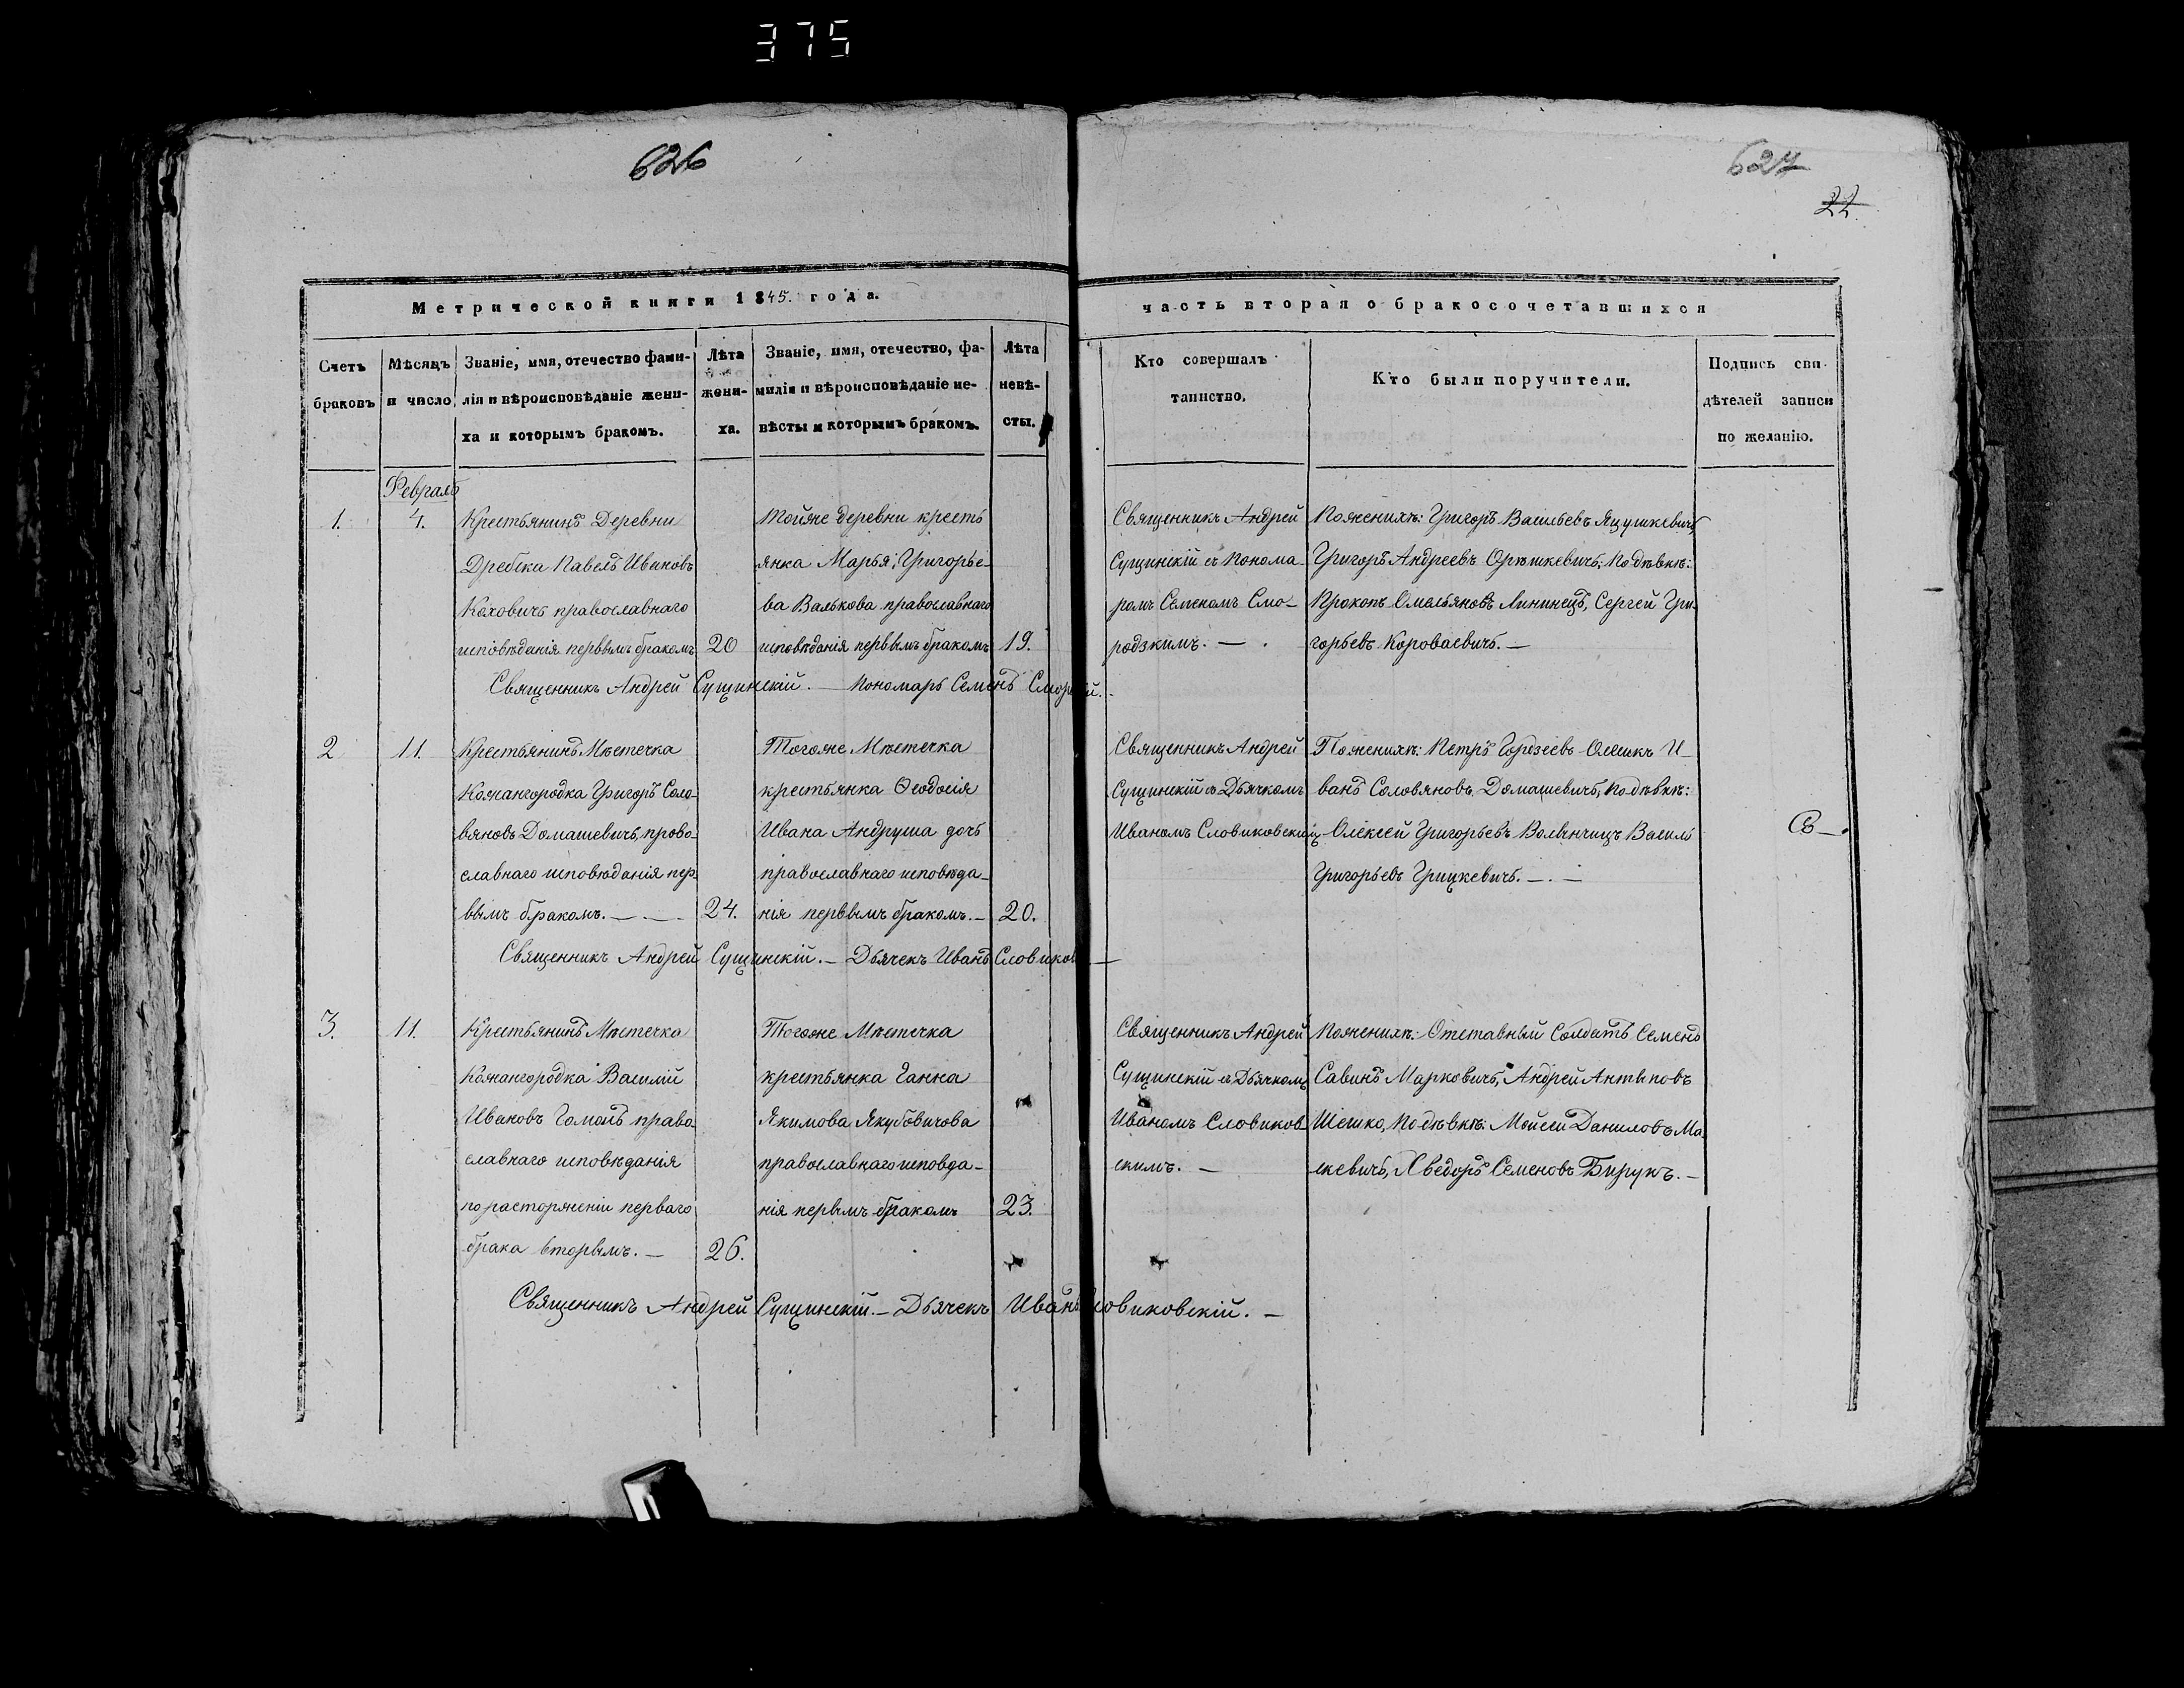 375
626
627
22.
Метрической книги 1845. года.
часть вторая о бракосочетавшихся
Счетъ браковъ
Мѣсяцъ и число
Званіе, имя, отечество фами-
лія и вѣроисповѣданіе жени-
ха и которымъ бракомъ.
Лѣта
жени-
ха.
Званіе, имя, отечество, фа-
милія и вѣроисповѣданіе не-
вѣсты и которымъ бракомъ.
Лѣта
невѣ-
сты.
Кто совершалъ
таинство.
Кто были поручители.
Подпись сви-
дѣтелей записи
по желанію.
Февраль
1.
4.
Крестьянинъ Деревни
Дребска Павелъ Ивановъ
Коховичъ православнаго
исповѣданія первымъ бракомъ
20
Тойже деревни кресть
янка Марья, Григорье-
ва Валькова православнаго
исповѣданія первымъ бракомъ
19.
Священникъ Андрей
Сущинскій съ Понома-
ромъ Семеномъ Смо-
родзкимъ. —
Поженихѣ: Григоръ Васильевъ Яцушкевичъ,
Григоръ Андреевъ Орѣшкевичъ; Подѣвкѣ:
Прокопъ Омельяновъ Лининецъ, Сергей Гри-
горьевъ Короваевичъ. —
Священникъ Андрей Сущинскій. — Пономаръ Семенъ
2
11.
Крестьянинъ Мѣстечка
Кожангородка Григоръ Соло-
вяновъ Домашевичъ, право-
славнаго исповѣданія пер-
вымъ бракомъ. — . —
24.
Тогоже Мѣстечка
крестьянка Ѳеодосія
Ивана Андруша дочь
православнаго исповѣда-
нія первымъ бракомъ. —
20.
Священникъ Андрей
Сущинскій съ Дьячкомъ
Иваномъ Словиковским
Поженихѣ: Петръ Гордзеевъ Олешкъ И-
ванъ Соловяновъ Домашевичъ, Подѣвкѣ:
Олексей Григорьевъ Волынчицъ Василь
Григорьевъ Грицкевичъ. — . —
Священникъ Андрей Сущинскій. — Дьячекъ Иванъ
3.
11.
Крестьянинъ Мѣстечка
Кожангородка Василій
Ивановъ Гоманъ право
славнаго исповѣданія
по расторженіи перваго
брака вторымъ. —
26.
Тогоже Мѣстечка
крестьянка Ганна
Якимова Якубовичова
православнаго исповда-
нія первымъ бракомъ
23.
Священникъ Андрей
Сущинскій съ Дьячкомъ
Иваномъ Словиков-
скимъ. —
Поженихѣ: Отставный Солдатъ Семенъ
Савинъ Марковичъ, Андрей Антыповъ
Шешко, Подѣвкѣ: Мойсей Даниловъ Ма-
скевичъ, Хведоръ Семеновъ Бирукъ. —
Священникъ Андрей Сущинскій. — Дьячекъ Иванъ Словиковскій. —